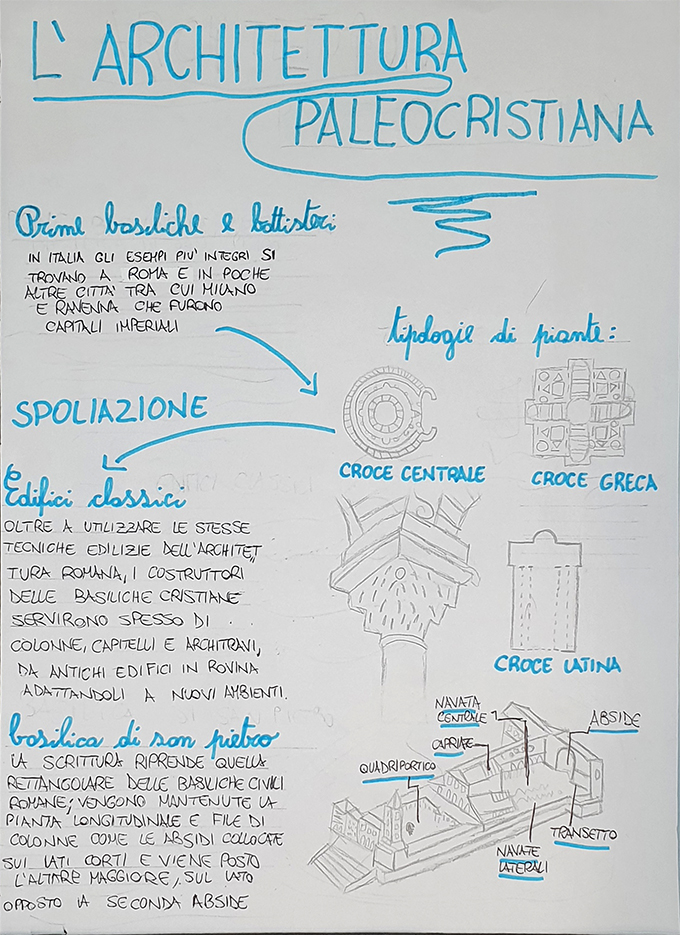 L'ARCHITETTURA
PALEOCRISTIANA
Prime basiliche e battisteri
IN ITALIA GLI ESEMPI PIU' INTEGRI SI
TROVANO A ROMA E IN POCHE
ALTRE CITTA' TRA CUI MILANO
E RAVENNA CHE FURONO
CAPITALI IMPERIALI
tipologie di piante:
SPOLIAZIONE
CROCE CENTRALE
CROCE GRECA
Edifici classici
OLTRE A UTILIZZARE LE STESSE
TECNICHE EDILIZIE DELL'ARCHITET„
TURA ROMANA, I COSTRUTTORI
DELLE BASILICHE CRISTIANE
SERVIRONO SPESSO DI
COLONNE, CAPITELLI E ARCHITRAVI,
DA ANTICHI EDIFICI IN ROVINA
ADATTANDOLI A NUOVI AMBIENTI.
CROCE LATINA
basilica di san pietro
LA SCRITTURA RIPRENDE QUELLA
RETTANGOLARE DELLE BASILICHE CIVILI
ROMANE; VENGONO MANTENUTE LA
PIANTA LONGITUDINALE E FILE DI
COLONNE COME LE ABSIDI COLLOCATE
SUI LATI CORTI E VIENE POSTO
L'ALTARE MAGGIORE, SUL LATO
OPPOSTO LA SECONDA ABSIDE
NAVATA
CENTRALE
ABSIDE
CAPRIATE
QUADRIPORTICO
TRANSETTO
NAVATE
LATERALI